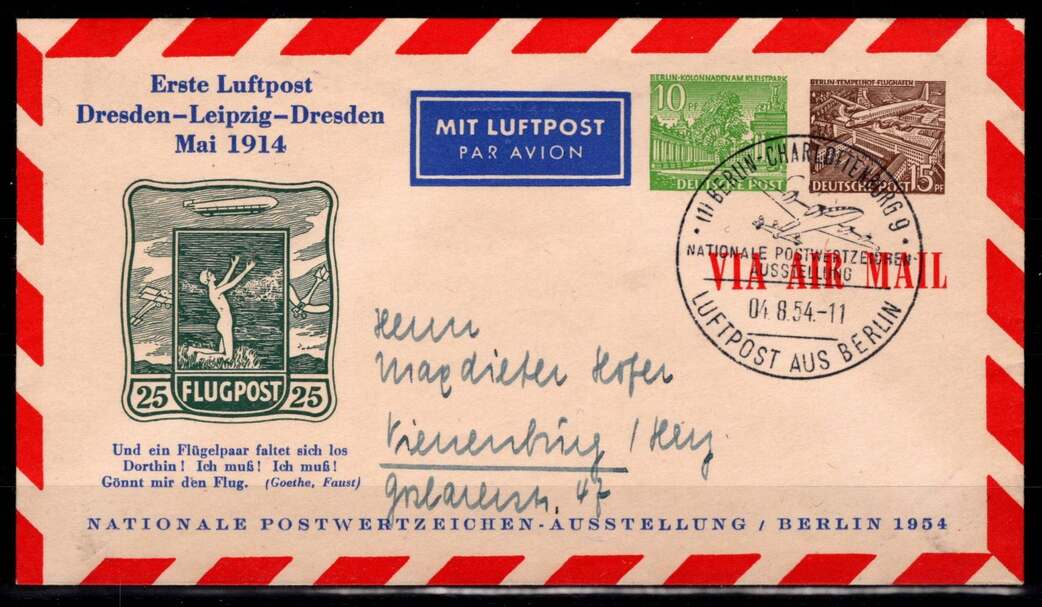 Erste Luftpost
Dresden–Leipzig–Dresden
Mai 1914
MIT LUFTPOST
PAR AVION
BERLIN-KOLONNADEN AM KLEISTPARK
10 PF
DEUTSCHE POST
BERLIN-TEMPELHOF-FLUGHAFEN
DEUTSCHE POST 15 PF
(1) BERLIN-CHARLOTTENBURG 9
NATIONALE POSTWERTZEICHEN-
AUSSTELLUNG
04.8.54.-11
LUFTPOST AUS BERLIN
VIA AIR MAIL
25 FLUGPOST 25
Herrn
Magdieter Hofer
Vienenburg / Harz
Goslarerstr. 47
Und ein Flügelpaar faltet sich los
Dorthin! Ich muß! Ich muß!
Gönnt mir den Flug. (Goethe, Faust)
NATIONALE POSTWERTZEICHEN-AUSSTELLUNG / BERLIN 1954